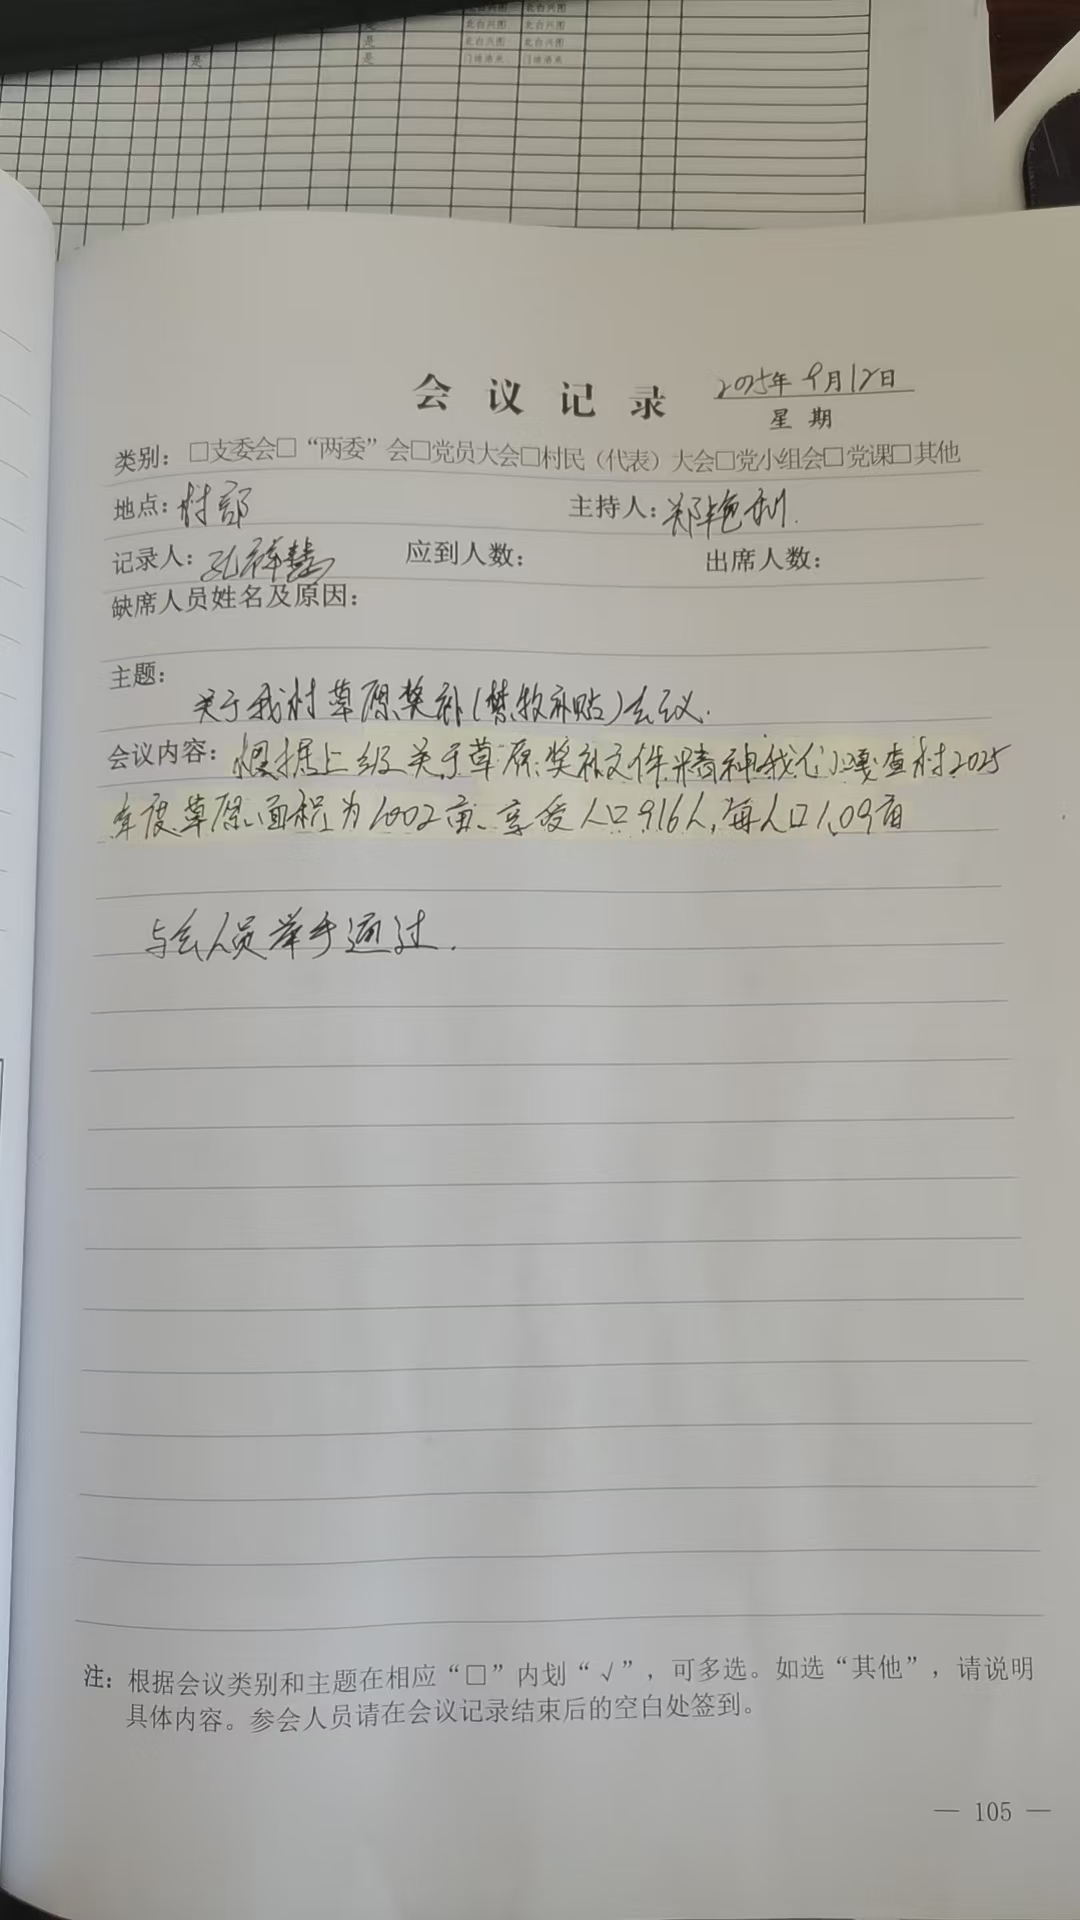 是 北台兴图 北台兴图
是 北台兴图 北台兴图
是 是
会议记录 2025年9月12日
星期
类别：□支委会□“两委”会□党员大会□村民（代表）大会□党小组会□党课□其他
地点：村部 主持人：郑艳利.
记录人：孔祥慧 应到人数： 出席人数：
缺席人员姓名及原因：
主题：
关于我村草原奖补（禁牧补贴）会议.
会议内容：根据上级关于草原奖补文件精神我们小嘎查村2025
年度草原面积为1002亩、享受人口916人，每人口1.09亩
与会人员举手通过.
注：根据会议类别和主题在相应“□”内划“√”，可多选。如选“其他”，请说明
具体内容。参会人员请在会议记录结束后的空白处签到。
— 105 —